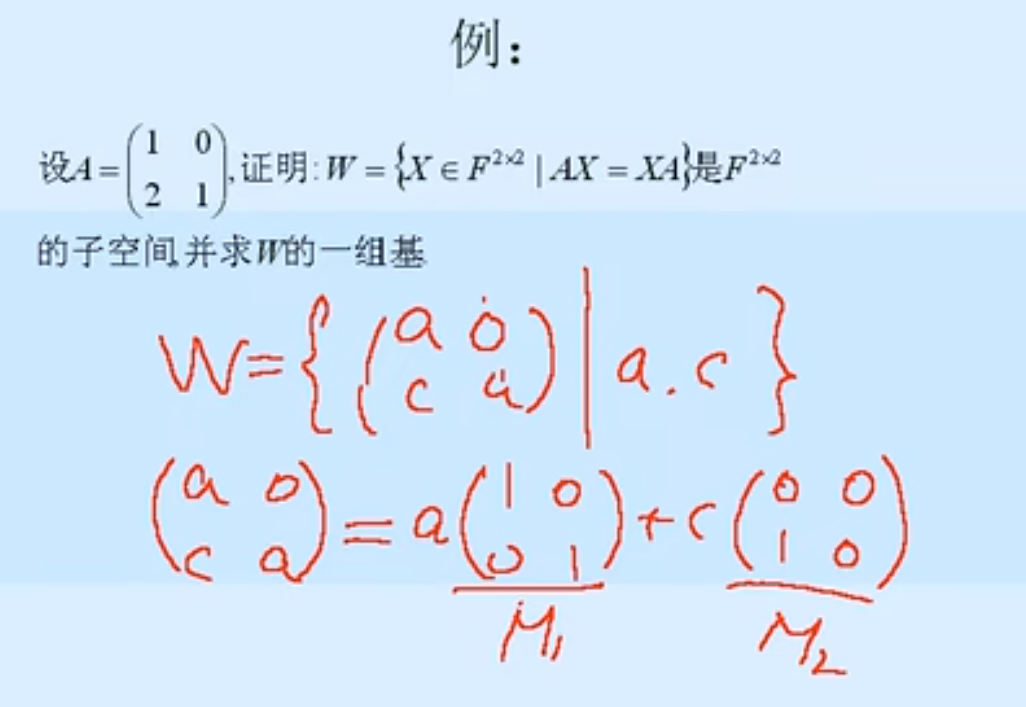 例：
设A=(1 0 / 2 1),证明:W={X∈F^{2×2}|AX=XA}是F^{2×2}
的子空间,并求W的一组基.
W={(a 0 / c a)|a.c}
(a 0 / c a)=a(1 0 / 0 1)+c(0 0 / 1 0)
M₁ M₂